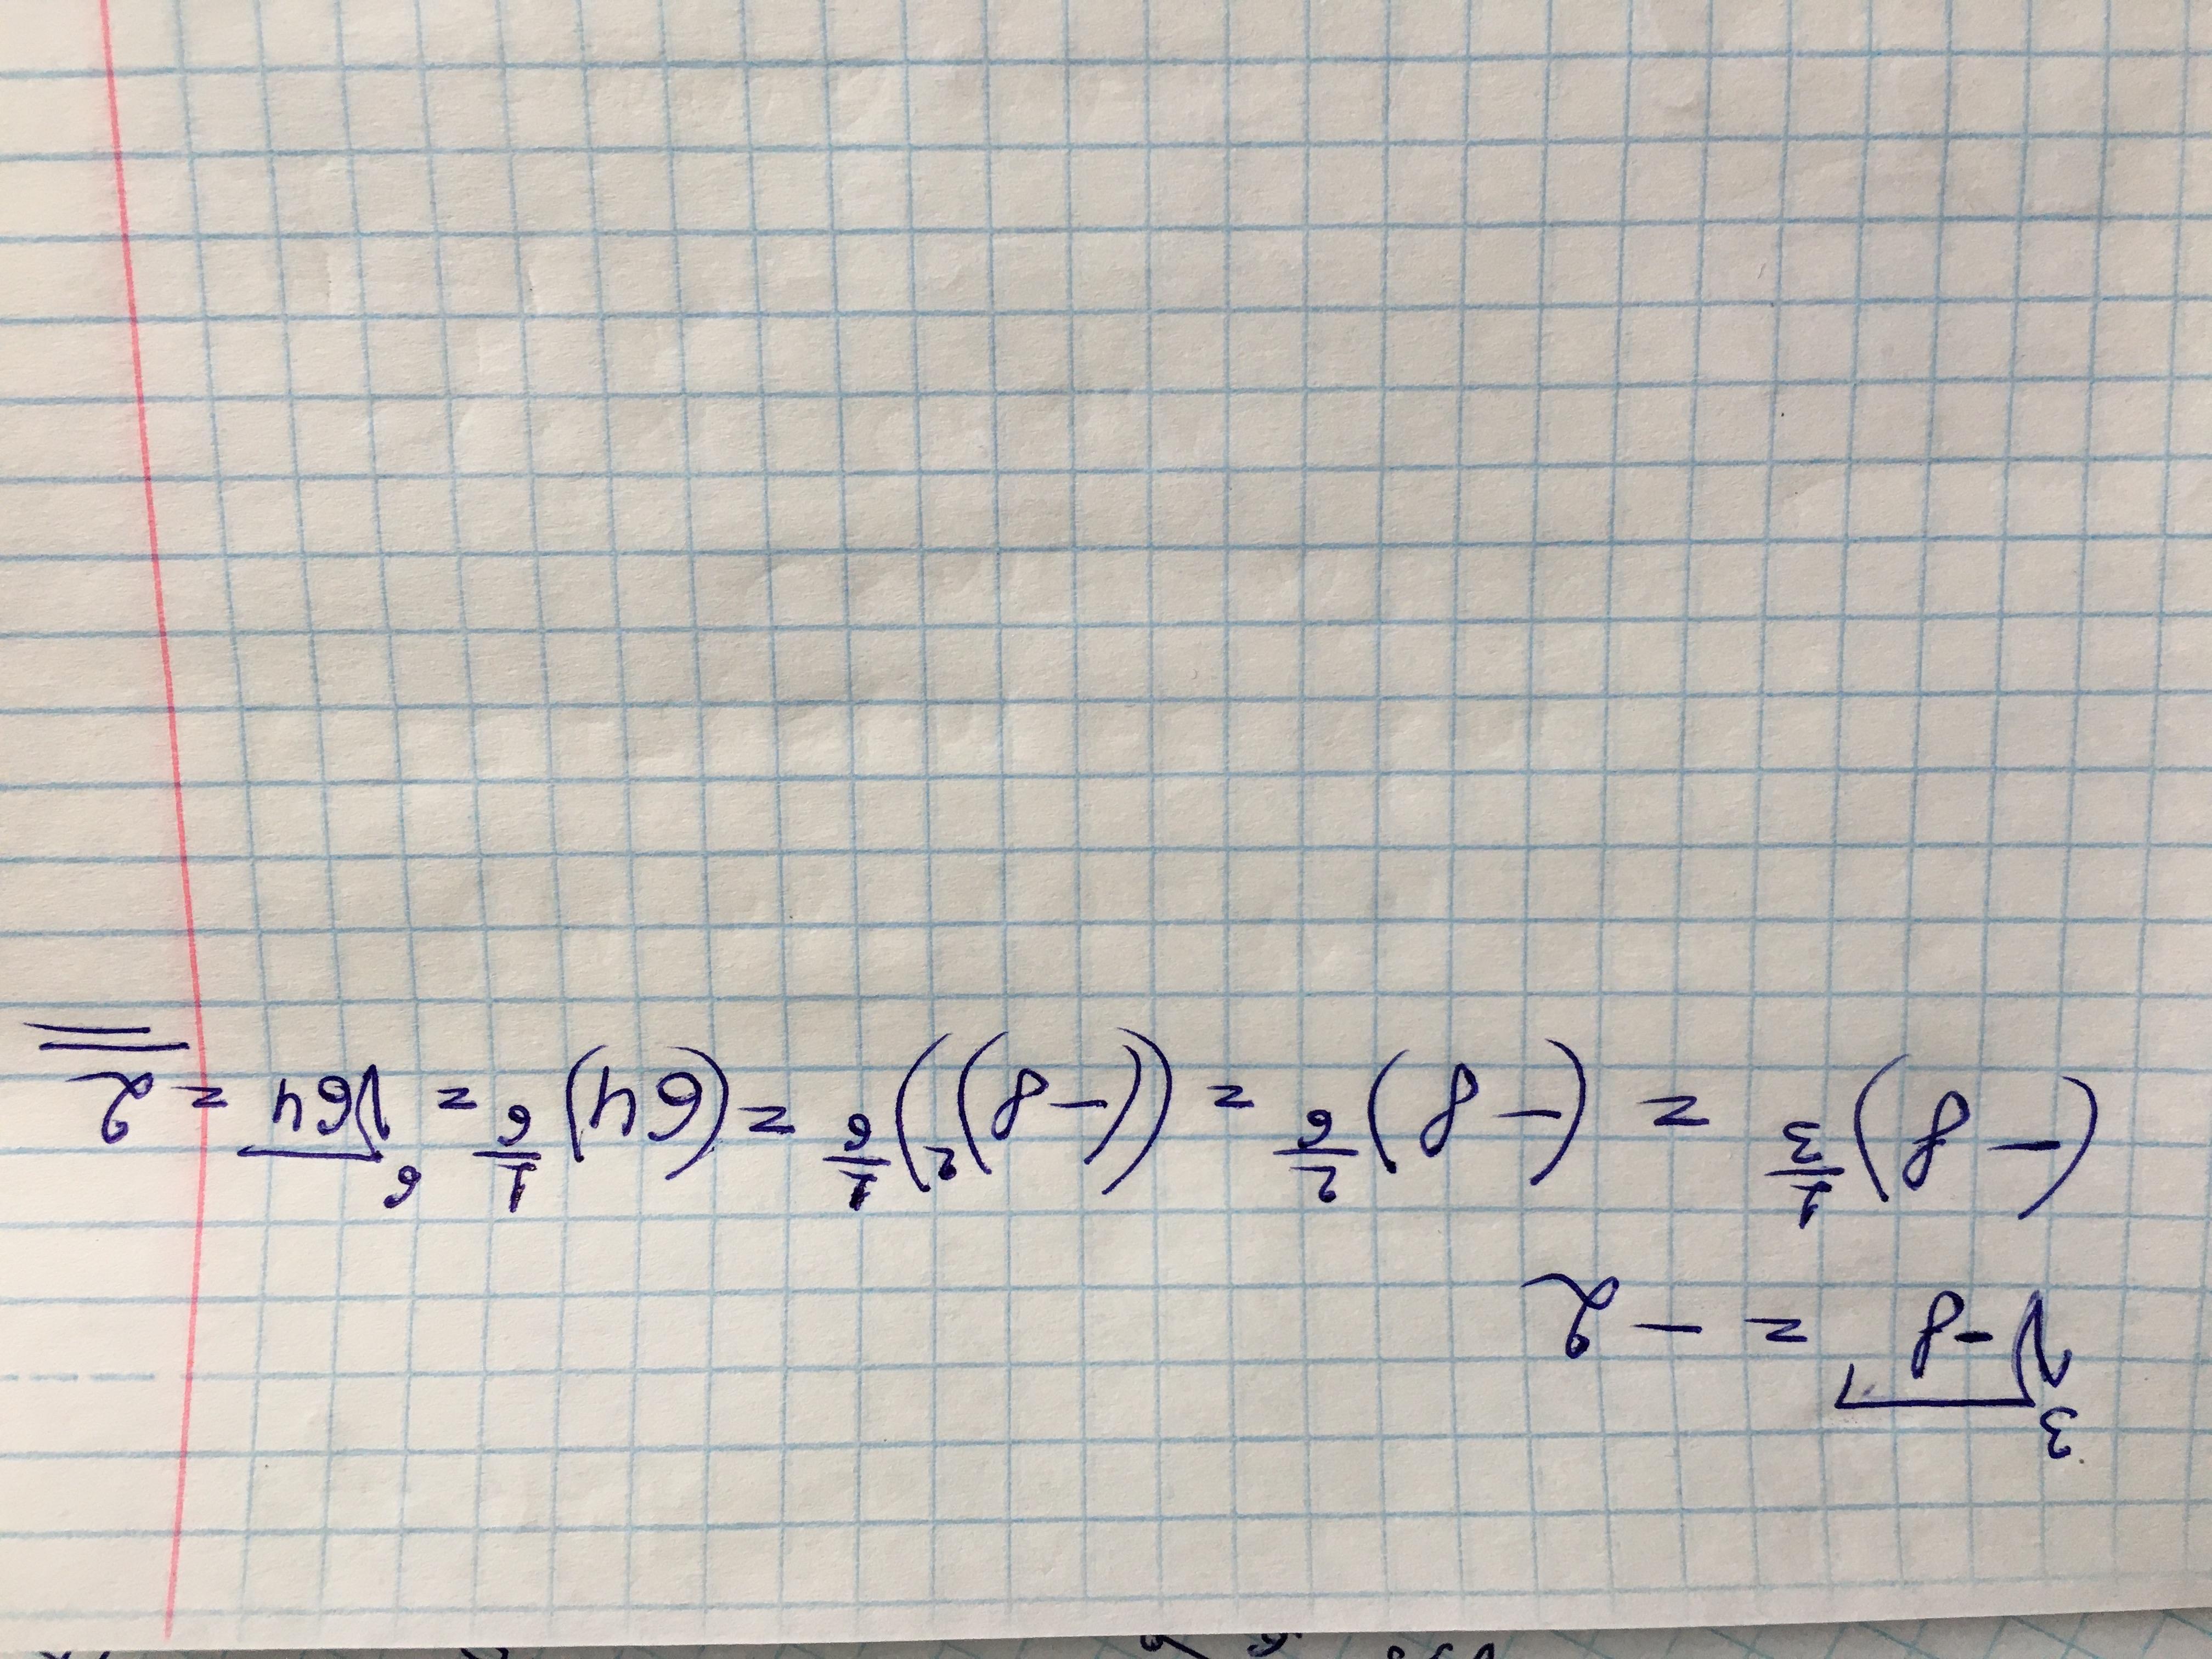 ∛-8 = -2
(-8)^(1/3) = (-8)^(2/6) = ((-8)^2)^(1/6) = (64)^(1/6) = ⁶√64 = 2